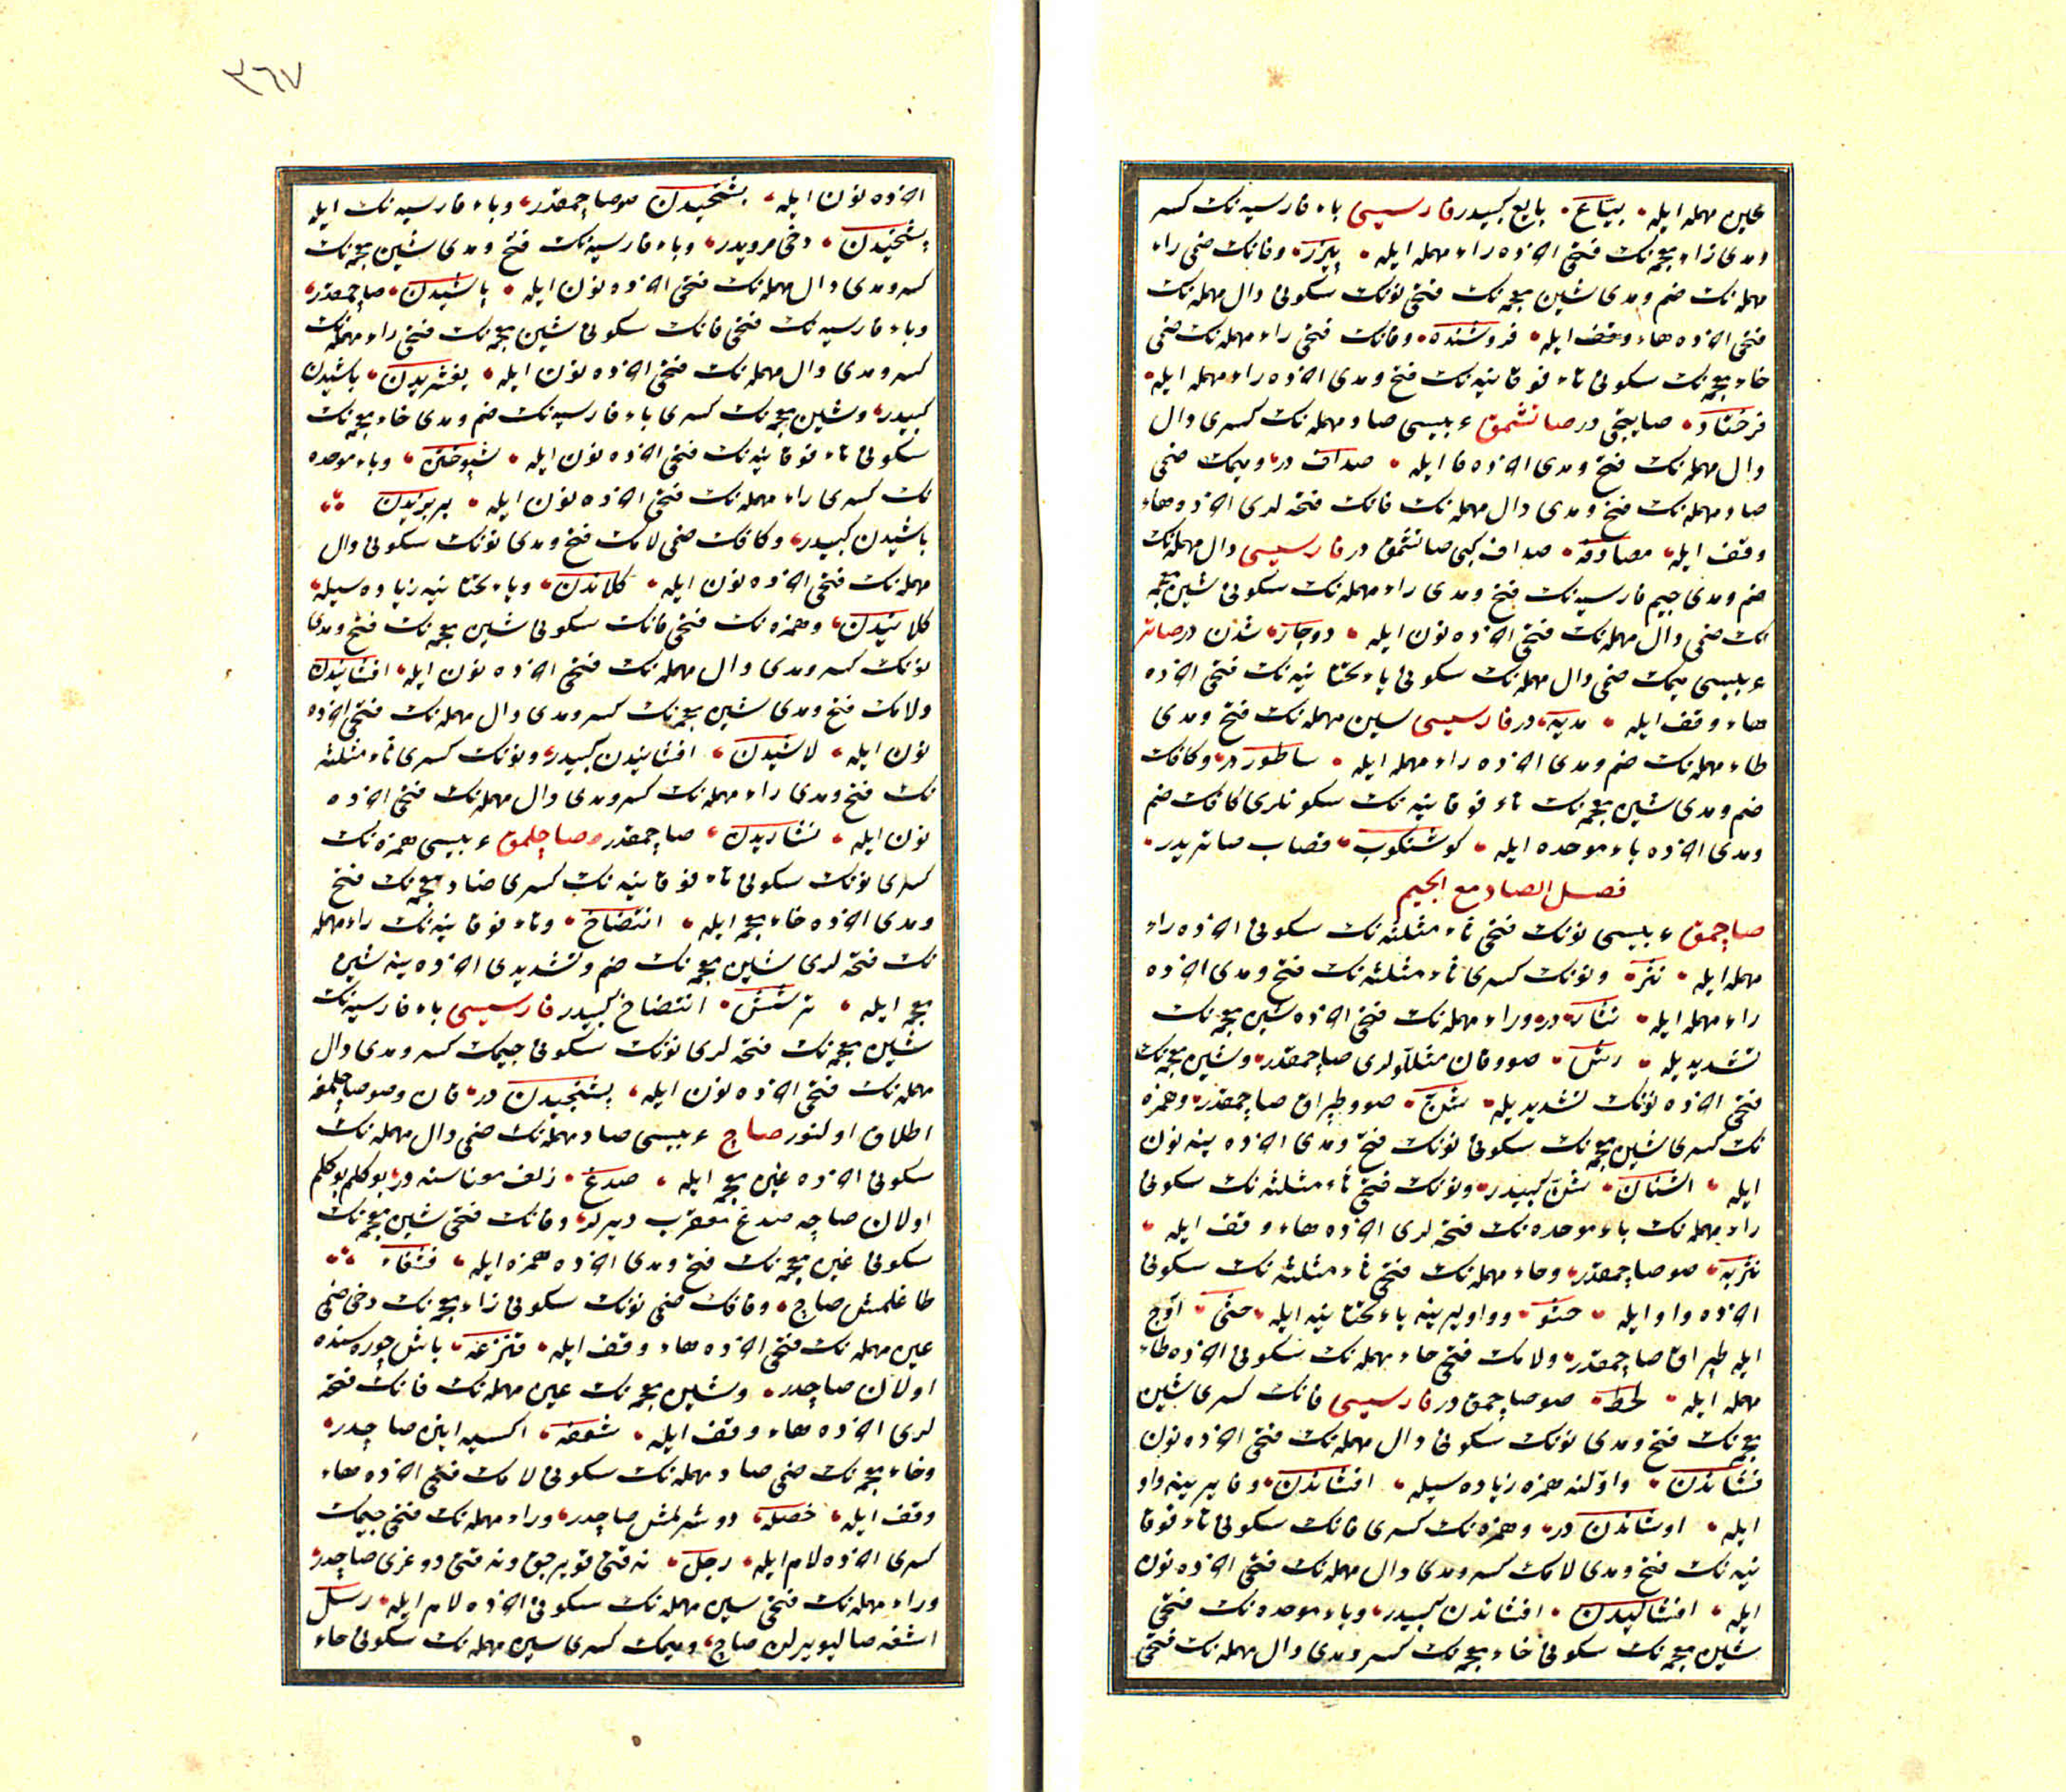 عين مهمله ايله بيّاع بايع كبيدر فارسيسى باء فارسيه نك كسر
ومدى زاء معجمه نك فتحى اخرده راء مهمله ايله پيزر وفانك ضمى راء
مهمله نك ضم ومدى شين معجمه نك فتحى نونك سكونى دال مهمله نك
فتحى اخرده هاء وقف ايله فروشنده وفانك فتحى راء مهمله نك ضمى
خاء معجمه نك سكونى تاء فوقانيه نك فتح ومدى اخرده راء مهمله ايله
فرختار صاتيجى در صاتشمق عربيسى صاد مهمله نك كسرى دال
دال مهمله نك فتح ومدى اخرده فا ايله صداف در وميمك ضمى
صاد مهمله نك فتح ومدى دال مهمله نك فانك فتحه لرى اخرده هاء
وقف ايله مصادفه صداف كبى صاتشمق در فارسيسى دال مهمله نك
ضم ومدى جيم فارسيه نك فتح ومدى راء مهمله نك سكونى شين معجمه
نك ضمى دال مهمله نك فتحى اخرده نون ايله دوچار شدن در صاتر
عربيسى ميمك ضمى دال مهمله نك سكونى ياء تحتانيه نك فتحى اخرده
هاء وقف ايله مديه در فارسيسى سين مهمله نك فتح ومدى
طاء مهمله نك ضم ومدى اخرده راء مهمله ايله ساطور در وكافك
ضم ومدى شين معجمه نك تاء فوقانيه نك سكونلرى كافك ضم
ومدى اخرده باء موحده ايله كوشتكوب قصاب صاتريدر
فصل الصاد مع الجيم
صاچمق عربيسى نونك فتحى ثاء مثلثه نك سكونى اخرده راء
مهمله ايله نثر ونونك كسرى ثاء مثلثه نك فتح ومدى اخرده
راء مهمله ايله نثار در وراء مهمله نك فتحى اخرده شين معجمه نك
تشديديله رش صو وقان مثللولرى صاچمقدر وشين معجمه نك
فتحى اخرده نونك تشديديله شنّ صو وطپراق صاچمقدر وهمزه
نك كسرى شين معجمه نك سكونى نونك فتح ومدى اخرده ينه نون
ايله اشنان شنّ كبيدر ونونك فتحى ثاء مثلثه نك سكونى
راء مهمله نك باء موحده نك فتحه لرى اخرده هاء وقف ايله
نثربه صو صاچمقدر وحاء مهمله نك فتحى ثاء مثلثه نك سكونى
اخرده واو ايله حثو وواو يرينه ياء تحتانيه ايله حثى آوج
ايله طپراق صاچمقدر ولامك فتحى حاء مهمله نك سكونى اخرده طاء
مهمله ايله لحط صو صاچمق در فارسيسى فانك كسرى شين
معجمه نك فتح ومدى نونك سكونى دال مهمله نك فتحى اخرده نون
فشاندن واولنه همزه زياده سيله افشاندن وفا يرينه واو
ايله اوشاندن در وهمزه نك كسرى فانك سكونى تاء فوقا
نيه نك فتح ومدى لامك كسر ومدى دال مهمله نك فتحى اخرده نون
ايله افتاليدن افشاندن كبيدر وباء موحده نك فتحى
شين معجمه نك سكونى خاء معجمه نك كسر ومدى دال مهمله نك فتحى
٣٦٧
اخرده نون ايله بشخيدن صو صاچمقدر وباء فارسيه نك ايله
پشخيدن دخى مرويدر وباء فارسيه نك فتح ومدى شين معجمه نك
كسر ومدى دال مهمله نك فتحى اخرده نون ايله پاشيدن صاچمقدر
وباء فارسيه نك فتحى فانك سكونى شين معجمه نك فتحى راء مهمله نك
كسر ومدى دال مهمله نك فتحى اخرده نون ايله پفشريدن پاشيدن
كبيدر وشين معجمه نك كسرى باء فارسيه نك ضم ومدى خاء معجمه نك
سكونى تاء فوقانيه نك فتحى اخرده نون ايله شپوختن وباء موحده
نك كسرى راء مهمله نك فتحى اخرده نون ايله بريزيدن
پاشيدن كبيدر وكافك ضمى لامك فتح ومدى نونك سكونى دال
مهمله نك فتحى اخرده نون ايله كلاندن وياء تحتانيه زياده سيله
كلانيدن وهمزه نك فتحى فانك سكونى شين معجمه نك فتح ومدى
نونك كسر ومدى دال مهمله نك فتحى اخرده نون ايله افشانيدن
ولامك فتح ومدى شين معجمه نك كسر ومدى دال مهمله نك فتحى اخرده
نون ايله لاشيدن افشانيدن كبيدر ونونك كسرى ثاء مثلثه
نك فتح ومدى راء مهمله نك كسر ومدى دال مهمله نك فتحى اخرده
نون ايله نثاريدن صاچمقدر صاچلمق عربيسى همزه نك
كسرى نونك سكونى تاء فوقانيه نك كسرى ضاد معجمه نك فتح
ومدى اخرده خاء معجمه ايله انتضاخ وتاء فوقانيه نك راء مهمله
نك فتحه لرى شين معجمه نك ضم وتشديدى اخرده ينه شين
معجمه ايله ترشّش انتضاخ كبيدر فارسيسى باء فارسيه نك
شين معجمه نك فتحه لرى نونك سكونى جيمك كسر ومدى دال
مهمله نك فتحى اخرده نون ايله پشنجيدن در قان وصو صاچلمغه
اطلاق اولنور صاچ عربيسى صاد مهمله نك ضمى دال مهمله نك
سكونى اخرده غين معجمه ايله صدغ زلف معناسنه در بوكلم بوكلم
اولان صاچه صدغ معقرب ديرلر وفانك فتحى شين معجمه نك
سكونى غين معجمه نك فتح ومدى اخرده همزه ايله فشغاء
طاغلمش صاچ وقافك ضمى نونك سكونى زاء معجمه نك دخى ضمى
عين مهمله نك فتحى اخرده هاء وقف ايله قنزعه باش چوره سنده
اولان صاچدر وشين معجمه نك عين مهمله نك فانك فتحه
لرى اخرده هاء وقف ايله شعفه اكسيه اينن صاچدر
وخاء معجمه نك ضمى صاد مهمله نك سكونى لامك فتحى اخرده هاء
وقف ايله خصله دوشرلمش صاچدر وراء مهمله نك فتحى جيمك
كسرى اخرده لام ايله رجل نه قتى قويرجق ونه قتى دوغرى صاچدر
وراء مهمله نك فتحى سين مهمله نك سكونى اخرده لام ايله رسل
اشغه صاليويرلن صاچ وميمك كسرى سين مهمله نك سكونى حاء